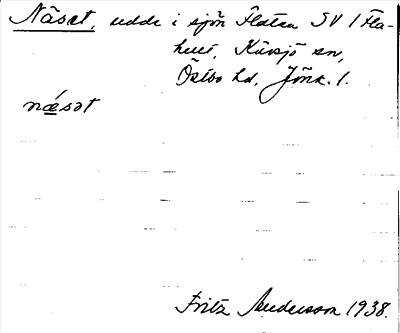 Näset, udde i sjön Flaten SV I Fla-
hult, Kävsjö sn,
Östbo hd, Jönk. l.
næ´sət
Fritz Andersson 1938.